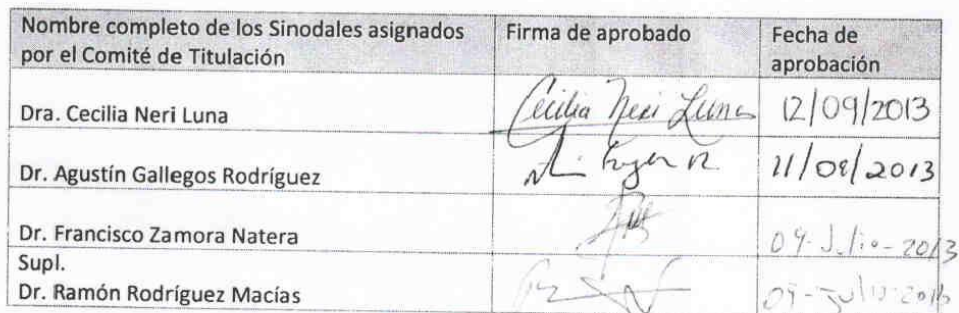 Nombre completo de los Sinodales asignados
por el Comité de Titulación
Firma de aprobado
Fecha de
aprobación
Dra. Cecilia Neri Luna
Cecilia Neri Luna
12/09/2013
Dr. Agustín Gallegos Rodríguez
11/08/2013
Dr. Francisco Zamora Natera
09-Julio-2013
Supl.
Dr. Ramón Rodríguez Macías
09-Julio-2013